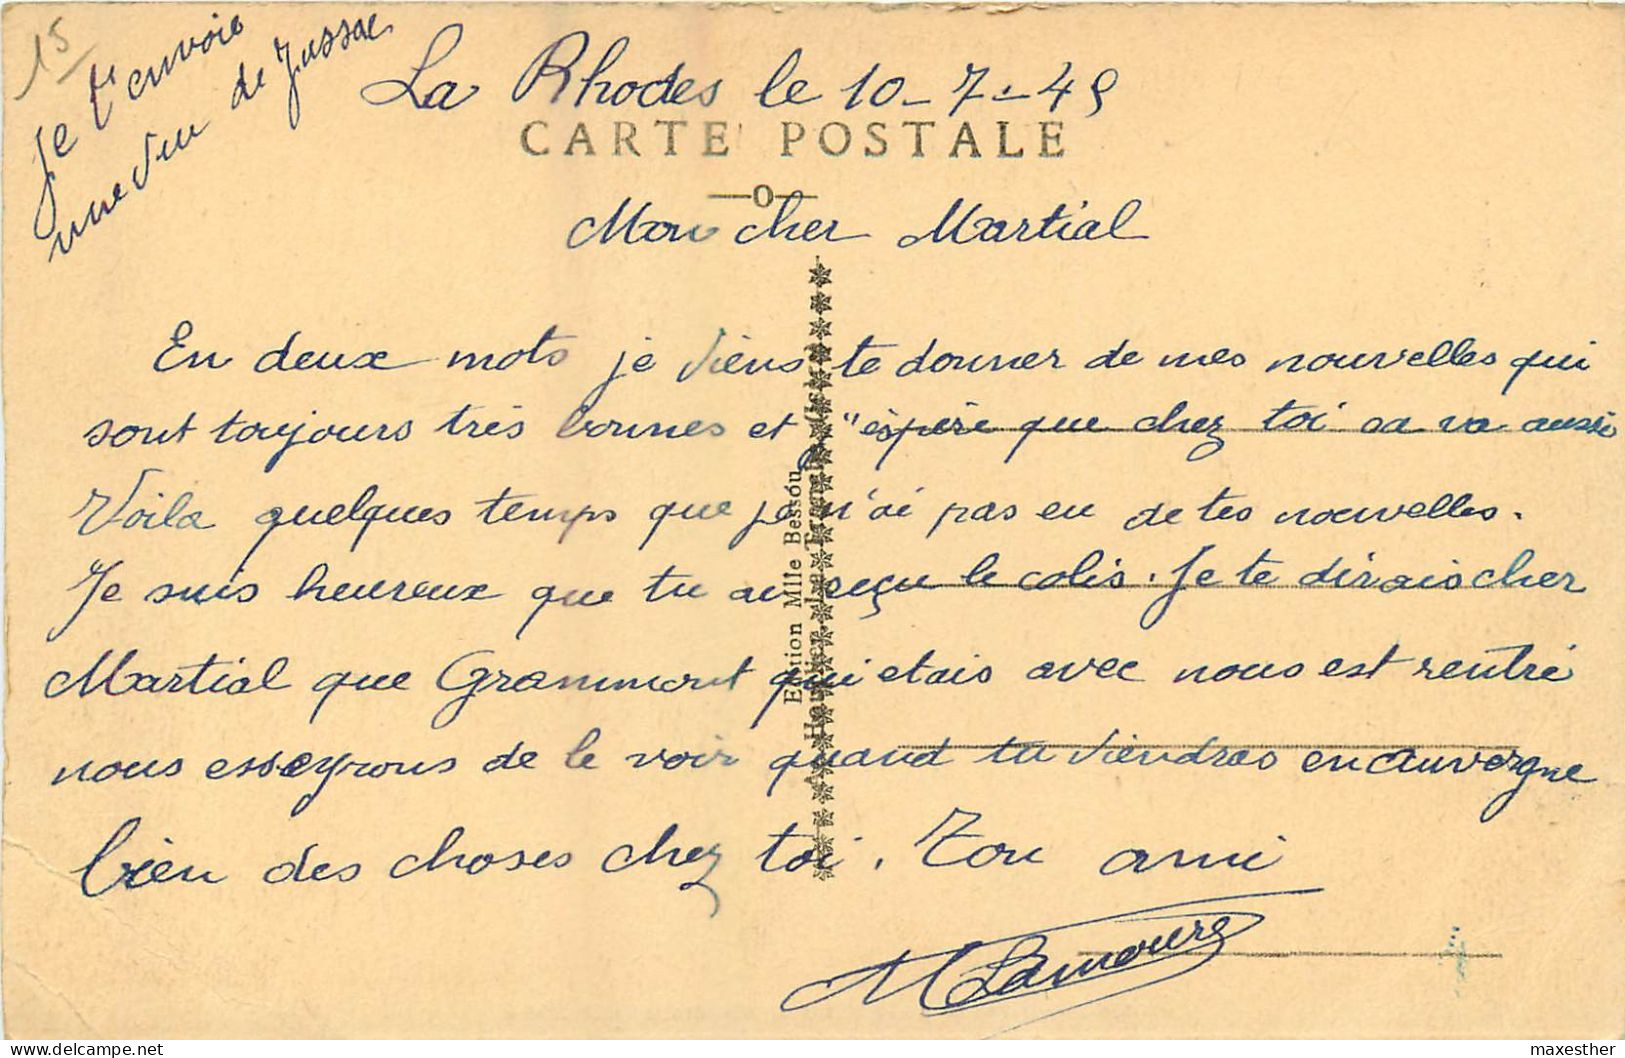 15
Je t'envoie
une vue de Jussac
La Rhodes le 10-7-49
CARTE POSTALE
Mon cher Martial
En deux mots je viens te donner de mes nouvelles qui
sont toujours très bonnes et j'éspère que chez toi sa va aussi
Voila quelques temps que je n'ai pas eu de tes nouvelles.
Je suis heureux que tu as reçu le colis. Je te dirais cher
Martial que Grammont qui etais avec nous est rentré
nous esseyrons de le voir quand tu viendras en auvergne
bien des choses chez toi. Ton ami
M Lamoure
Edition Mlle Bessou
maxesther